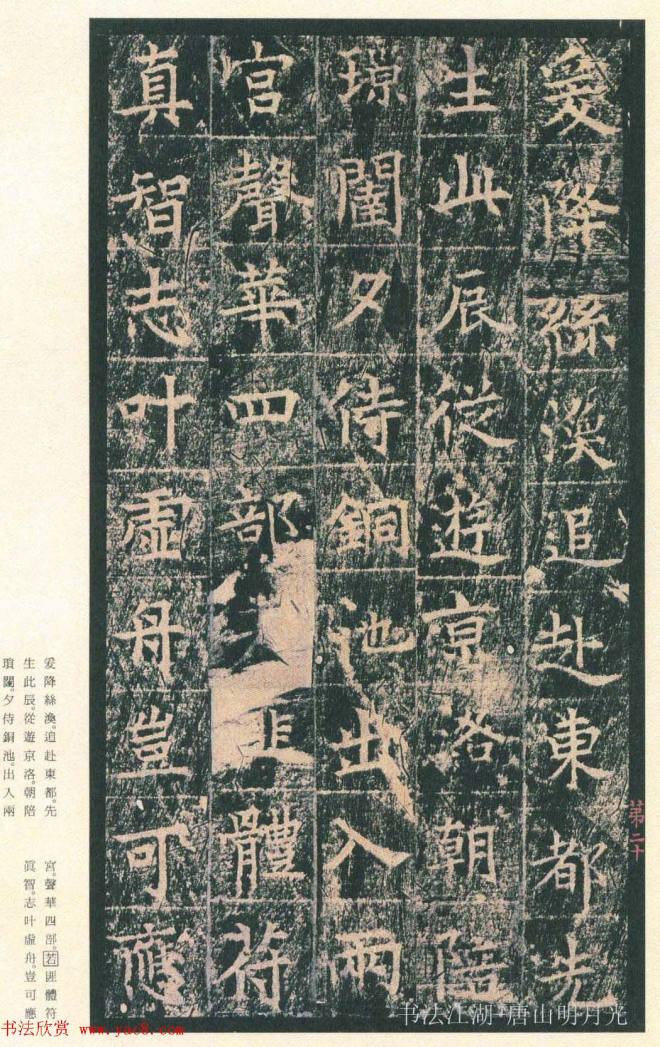 爰降絲渙追赴東都先
生此辰從遊京洛朝陪
瑣闈夕侍銅池出入兩
宮聲華四部匪體符
真智志叶虛舟豈可應
第二十
爰降絲渙。追赴東都。先
生此辰。從遊京洛。朝陪
瑣闈。夕侍銅池。出入兩
宮。聲華四部。若匪體符
眞智。志叶虛舟。豈可應
书法江湖-唐山明月光
书法欣赏 www.yac8.com